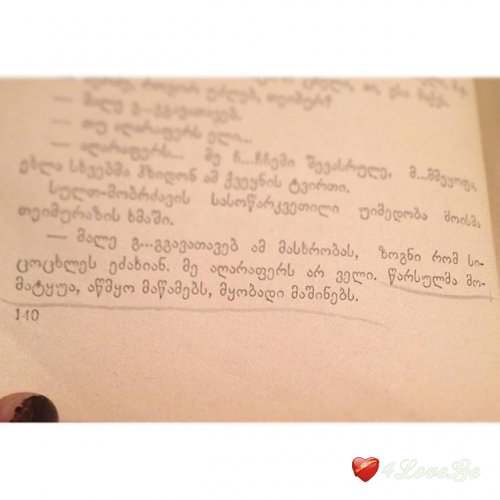 — მალე გ...გგავათავებ.
— თუ აღარაფერს ელი...
— აღარაფერს... მე ჩ...ჩჩემი შევასრულე, მ...მმეყოფა,
ეხლა სხვებმა ჰზიდონ ამ ქვეყნის ტვირთი.
სულთ-მობრძავის სასოწარკვეთილი უიმედობა მოისმა
თეიმურაზის ხმაში.
— მალე გ...გგავათავებ ამ მასხრობას, ზოგნი რომ სი-
ცოცხლეს ეძახიან. მე აღარაფერს არ ველი. წარსულმა მო-
მატყუა, აწმყო მაწამებს, მყობადი მაშინებს.
140
4Love.Ge